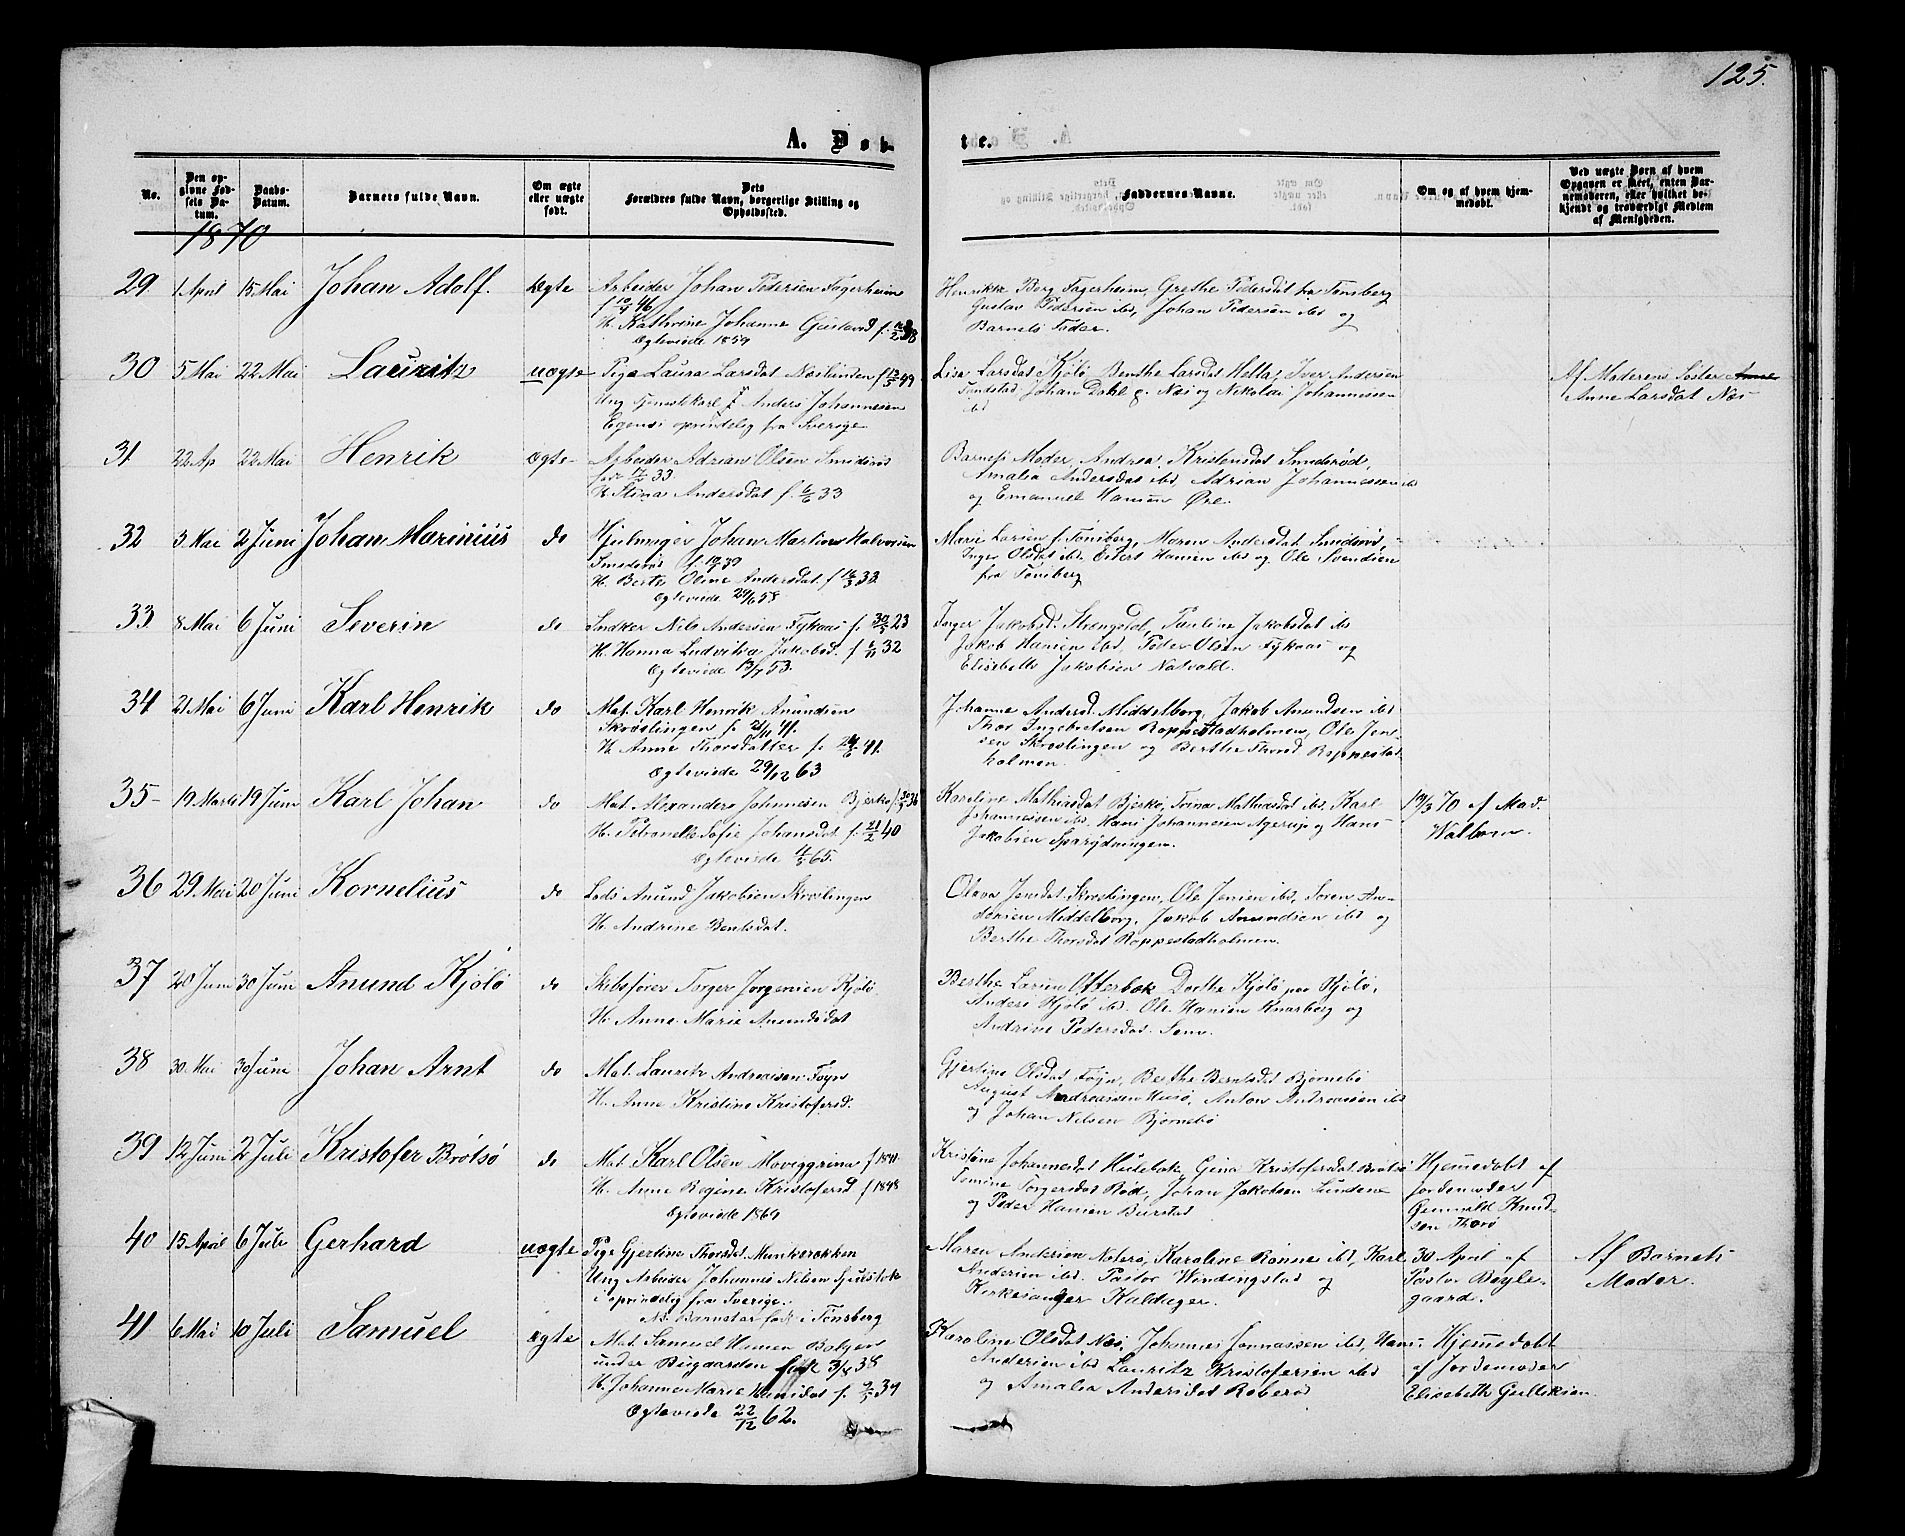 125.
A. Døbte.
No.
Den opgivne Fødsels Datum.
Daabs-Datum.
Barnets fulde Navn.
Om ægte eller uægte født.
Dets Forældres fulde Navn, borgerlige Stilling og Opholdssted.
Faddernes Navne.
Om og af hvem hjemmedøbt.
Ved uægte Børn af hvem Opgaven er skeet, enten Barnemoderen, eller hvilket bekjendt og troværdigt Medlem af Menigheden.
1870
29 1 April 15 Mai Johan Adolf. Ægte
Arbeider Johan Pedersen Fagerheim
H. Kathrine Johanne Gustavsd
Egteviede 1859
Henrikke Berg Fagerheim, Grethe Pedersdat fra Tønsberg
Gustav Pedersen ibd, Johan Pedersen ibd og
Barnets Fader.
30 5 Mai 22 Mai Lauritz uægte
Pige Laura Larsdat Næslinden
Ung Tjenestkarl Anders Johannesen
oprindelig fra Sverige
Lisa Larsdat Kjølø Benthe Larsdat Hella, Iver Andersen
Johan Dahl Næs og Nikolai Johannessen
ibd
Af Moderens Søster
Anne Larsdat Næs
31 22 Ap 22 Mai Henrik ægte
Arbeider Adrian Olsen Smiderød
H. Stina Andersdat f. 6/6 33
Barnets Moder, Andrea Kristensdat Smiderød,
Amalia Andersdat ibd Adrian Johannessen ibd
og Emanuel Hansen Øre.
32 3 Mai 2 Juni Johan Marinius do
Hjulmager Johan Martin Halvorsen
Smiderød
H. Berthe Oline Andersdat.
Egteviede 58
Marie Larsen f. Tønsberg, Maren Andersdat Smiderød,
Inger Olsdat ibd, Eilert Hansen ibd og Ole Svendsen
fra Tønsberg
33 8 Mai 6 Juni Severin do
Snekker Nils Andersen Fykaas
H. Hanna Ludvikka Jakobsd.
Egteviede 13/7 53.
Inger Jakobsd. Strengsdal, Pauline Jakobsdat ibd
Jakob Hansen ibd, Peder Olsen Fykaas og
Elisabeth Jakobsen Natvald.
34 21 Mai 6 Juni Karl Henrik do
Mat. Karl Henrik Amundsen
Skrøslingen f. 21/11 41.
H. Anne Thorsdatter
Egteviede 29/12 63
Johanne Andersd Middelborg, Jakob Amundsen ibd
Thor Ingebretsen Roppestadholmen, Ole Jensen
Skrøslingen og Berthe Thorsd Roppestadholmen.
35 19 Marts 19 Juni Karl Johan do
Mat. Alexander Johannesen Bjerkø
H. Petronelle Sofie Johansdat f. 21/2 40
Egteviede 65.
Karoline Mathisdat Bjerkø, Trina Mathiasdat ibd, Karl
Johannessen ibd, Hans Johannesen Agerup og Hans
Jakobsen
19/3 70 af Mad.
Walbom.
36 29 Mai 20 Juni Kornelius do
Lods Amund Jakobsen Skrøslingen
H. Andrine Bentsdat.
Olava Jensdat Skrøslingen, Ole Jensen ibd, Søren Andersen
Middelborg, Jakob Amundsen ibd og
Berthe Thorsdat Roppestadholmen.
37 20 Juni 30 Juni Amund Kjølø do
Skibsfører Torger Jørgensen Kjølø
H. Anne Marie Amundsdat
Berthe Larsen Otterbæk Dorthe Kjølø paa Kjølø,
Anders Kjølø ibd. Ole Hansen Knarberg og
Andrine Pedersdat. Sem.
38 30. Mai 30 Juni Johan Arnt do
Mat. Lauritz Andreassen Føyn
H. Anne Kristine Kristofersd.
Gjertine Olsdat Føyn, Berthe Berntsdat Bjørnebø
August Andreassen Husø, Anton Andreassen ibd
og Johan Nilsen Bjørnebø
39 12 Juni 2 Juli Kristofer Brøtsø do
Mat. Karl Olsen
H. Anne Regine Kristofersd f 1848
Egteviede 1869
Kristine Johannesdat Hulebak, Gina Kristofersdat Brøtsø
Tomine Torgersdat Rød, Johan Jakobsen Sundene
og Peder Hansen
Hjemmedøbt af
Jordemoder
Gunnild Knudsen
Thorø
40 15 April 6 Juli Gerhard uægte
Pige Gjertine Thorsdat Munkerækken
Ung Arbeider Johannes Nilsen
oprindelig fra Sverige.
NB Barnet er født i Tønsberg
Maren Andersen Nøterø, Karoline Rønne ibd, Karl
Andersen ibd. Pastor Windingstad og
Kirkesanger Kaldager.
30 April af
Pastor Bøylegaard.
Af Barnets
Moder.
41 6 Mai 10 Juli Samuel ægte
Mat. Samuel Hansen
under Buggaarden født 3/8 38
H. Johanne Marie
Egteviede 22/12 62.
Karoline Olsdat Næs, Johannes Jonnassen ibd, Hans
Andersen ibd Lauritz Kristofersen ibd
og Amalia Andersdat Roberød
Hjemmedøbt
af Jordemoder
Elisabeth Gulliksen.